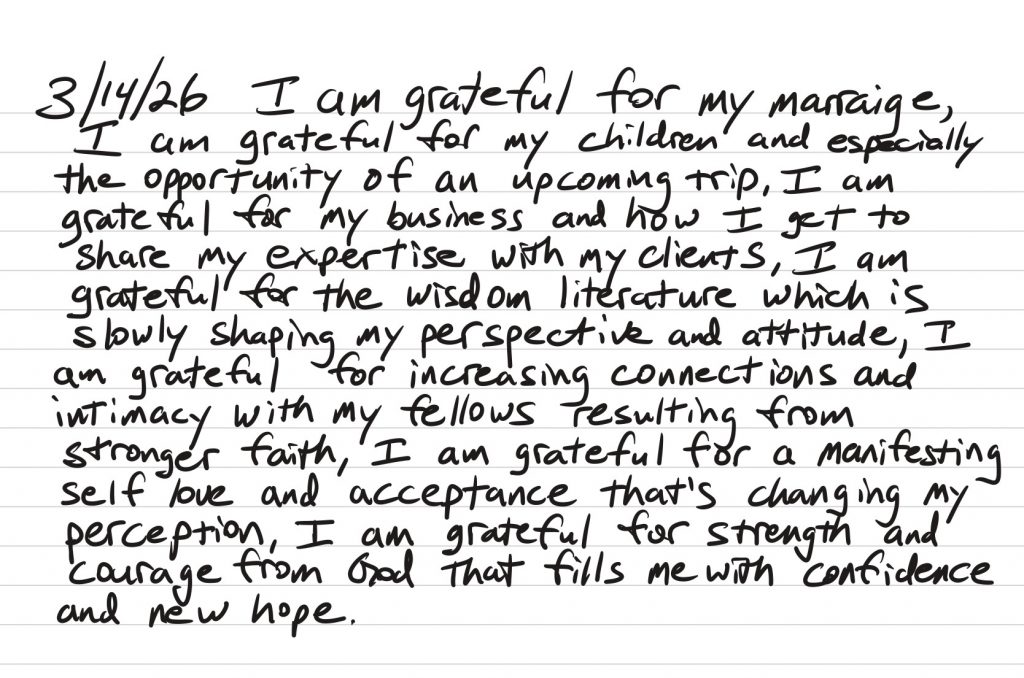 3/14/26 I am grateful for my marraige,
I am grateful for my children and especially
the opportunity of an upcoming trip, I am
grateful for my business and how I get to
share my expertise with my clients, I am
grateful for the wisdom literature which is
slowly shaping my perspective and attitude, I
am grateful for increasing connections and
intimacy with my fellows resulting from
stronger faith, I am grateful for a manifesting
self love and acceptance that's changing my
perception, I am grateful for strength and
courage from God that fills me with confidence
and new hope.